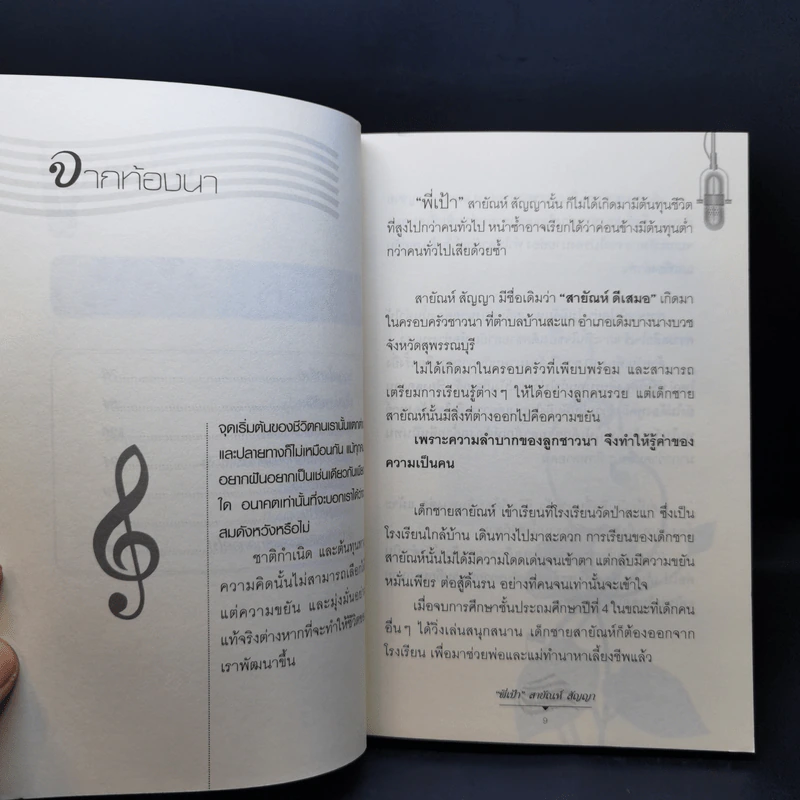 จากท้องนา
จุดเริ่มต้นของชีวิตคนเรานั้นแตกต่าง
และปลายทางก็ไม่เหมือนกัน แม้ทุกคน
อยากฝันอยากเป็นเช่นเดียวกันเพียง
ใด อนาคตเท่านั้นที่จะบอกเราได้ว่า
สมดังหวังหรือไม่
ชาติกำเนิด และต้นทุนทาง
ความคิดนั้นไม่สามารถเลือกได้
แต่ความขยัน และมุ่งมั่นอย่าง
แท้จริงต่างหากที่จะทำให้ชีวิตของ
เราพัฒนาขึ้น
“พี่เป้า” สายัณห์ สัญญานั้น ก็ไม่ได้เกิดมามีต้นทุนชีวิต
ที่สูงไปกว่าคนทั่วไป หนำซ้ำอาจเรียกได้ว่าค่อนข้างมีต้นทุนต่ำ
กว่าคนทั่วไปเสียด้วยซ้ำ
สายัณห์ สัญญา มีชื่อเดิมว่า “สายัณห์ ดีเสมอ” เกิดมา
ในครอบครัวชาวนา ที่ตำบลบ้านสะแก อำเภอเดิมบางนางบวช
จังหวัดสุพรรณบุรี
ไม่ได้เกิดมาในครอบครัวที่เพียบพร้อม และสามารถ
เตรียมการเรียนรู้ต่างๆ ให้ได้อย่างลูกคนรวย แต่เด็กชาย
สายัณห์นั้นมีสิ่งที่ต่างออกไปคือความขยัน
เพราะความลำบากของลูกชาวนา จึงทำให้รู้ค่าของ
ความเป็นคน
เด็กชายสายัณห์ เข้าเรียนที่โรงเรียนวัดป่าสะแก ซึ่งเป็น
โรงเรียนใกล้บ้าน เดินทางไปมาสะดวก การเรียนของเด็กชาย
สายัณห์นั้นไม่ได้มีความโดดเด่นจนเข้าตา แต่กลับมีความขยัน
หมั่นเพียร ต่อสู้ดิ้นรน อย่างที่คนจนเท่านั้นจะเข้าใจ
เมื่อจบการศึกษาชั้นประถมศึกษาปีที่ 4 ในขณะที่เด็กคน
อื่นๆ ได้วิ่งเล่นสนุกสนาน เด็กชายสายัณห์ก็ต้องออกจาก
โรงเรียน เพื่อมาช่วยพ่อและแม่ทำนาหาเลี้ยงชีพแล้ว
“พี่เป้า” สายัณห์ สัญญา
9